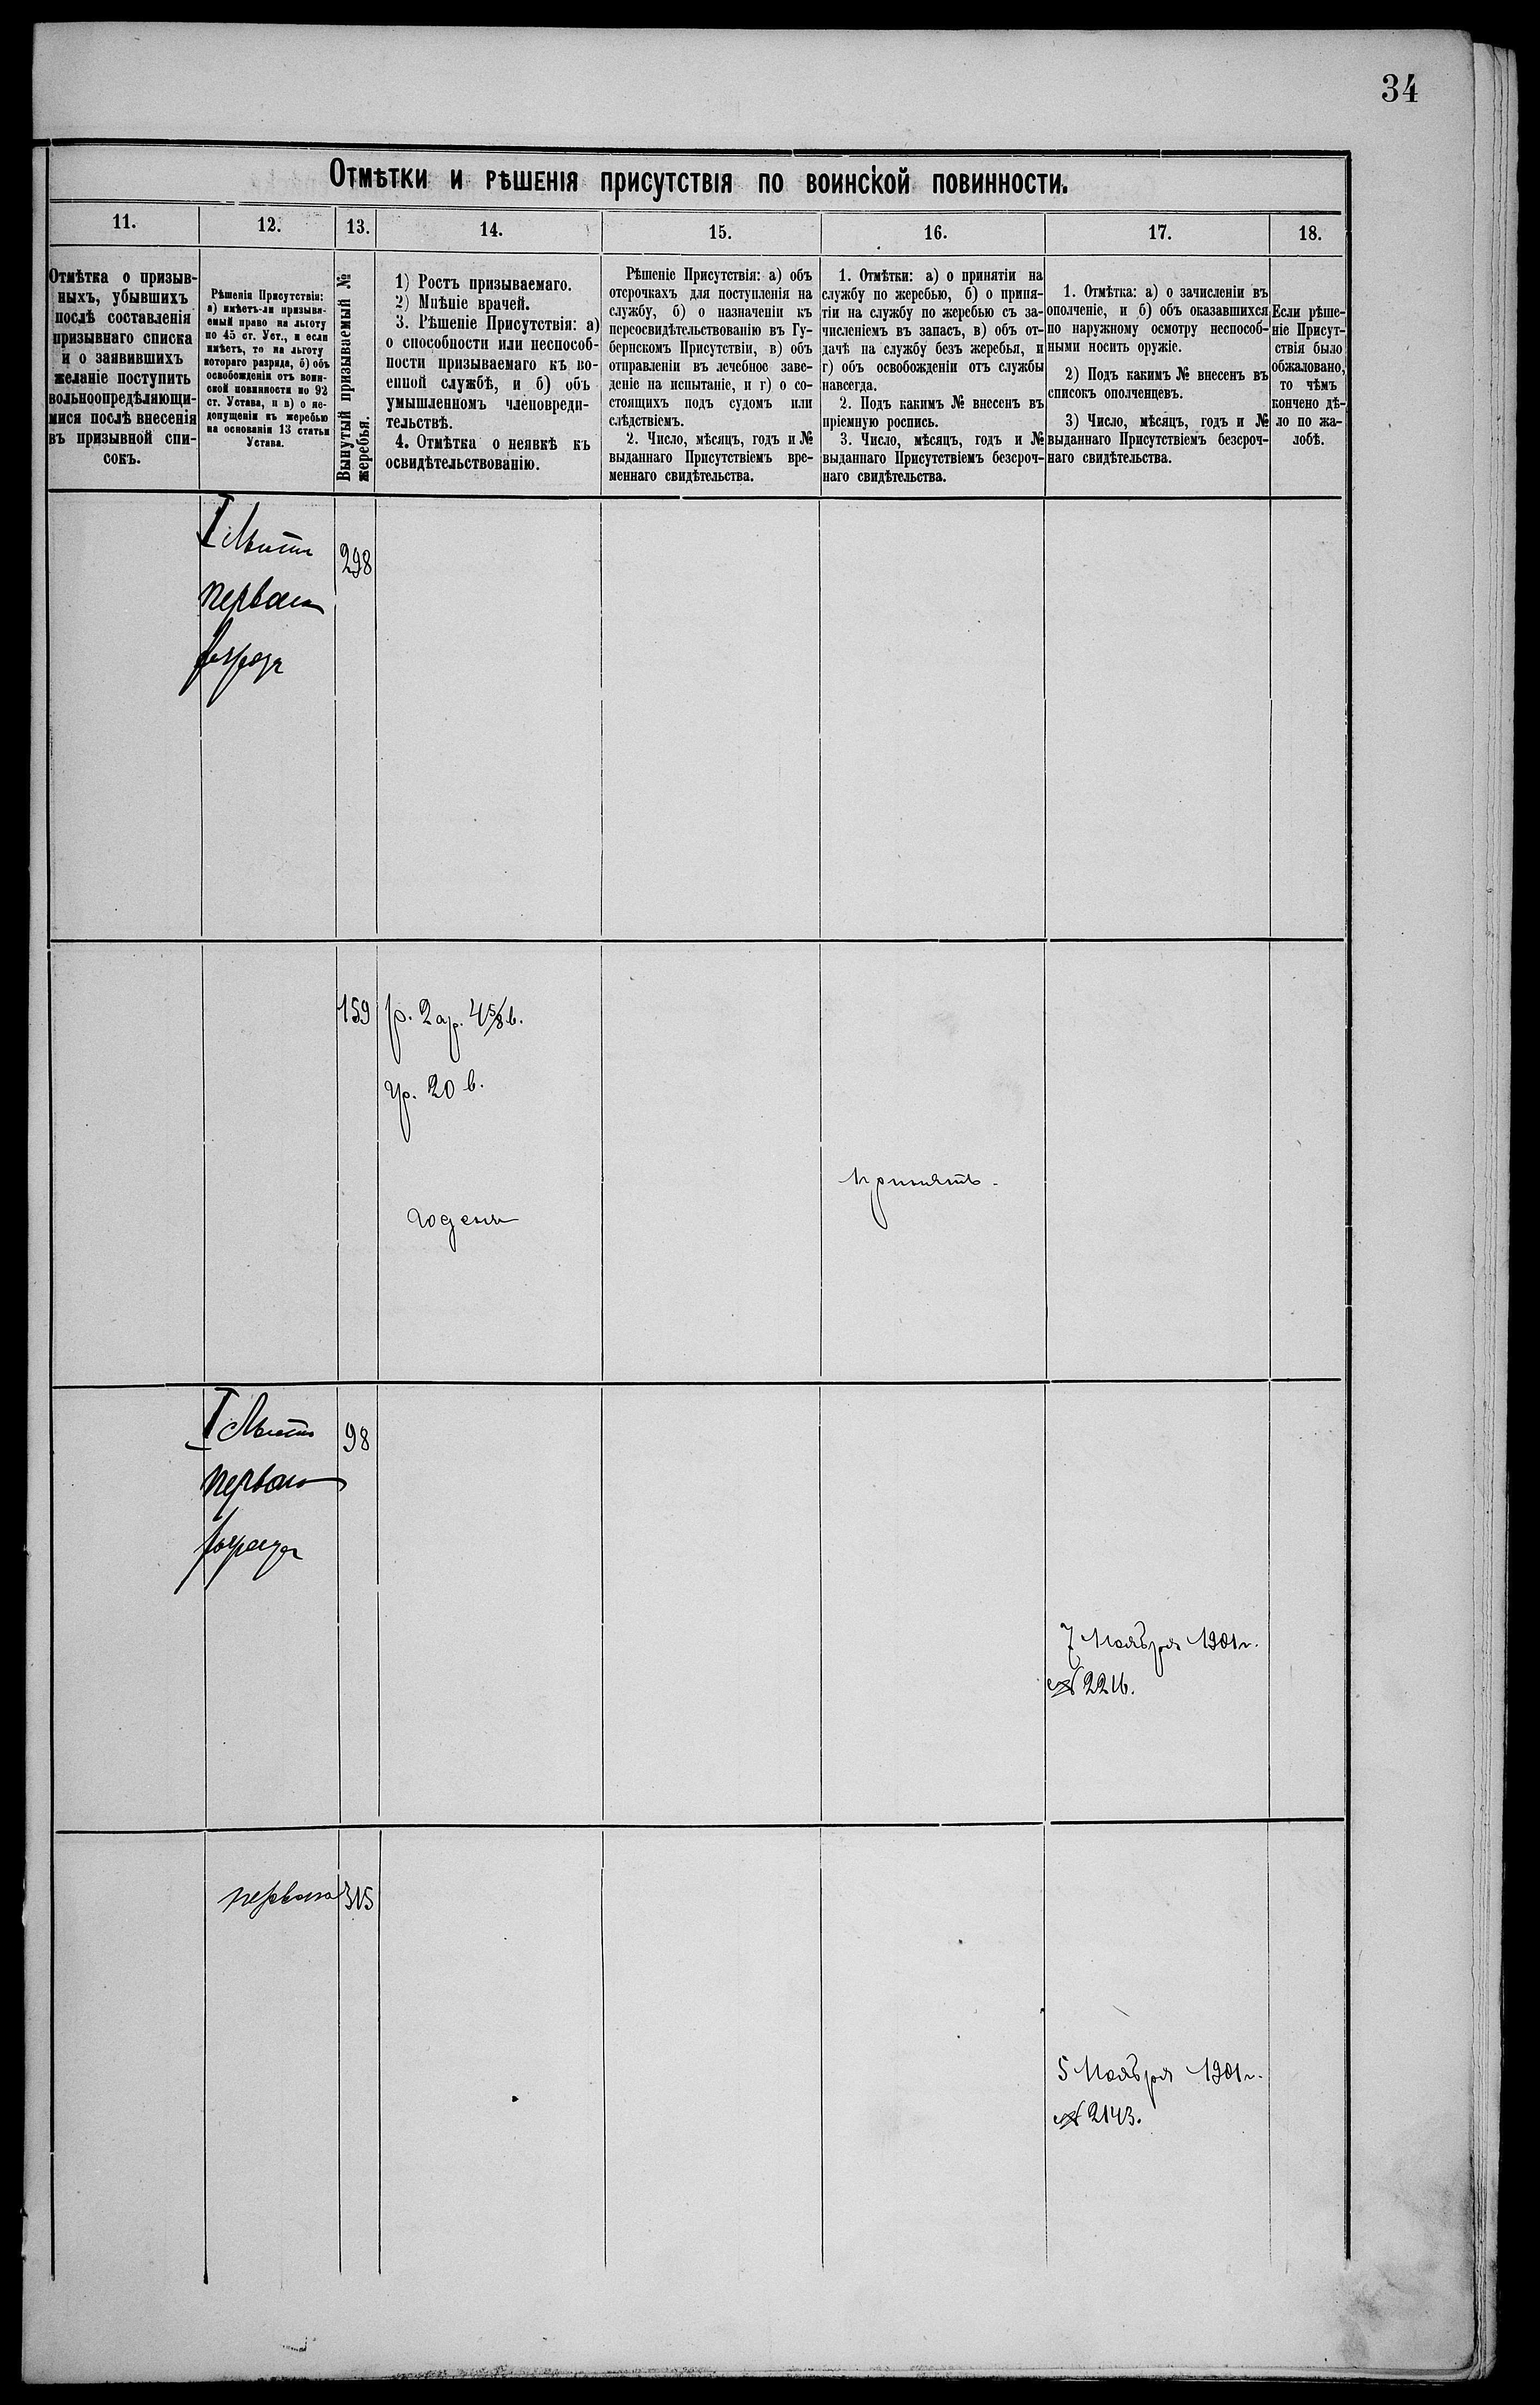 34
Отмѣтки и рѣшенія присутствія по воинской повинности.
11.
12.
13.
14.
15.
16.
17.
18.
Отмѣтка о призыв-
ныхъ, убывшихъ
послѣ составленія
призывнаго списка
и о заявившихъ
желаніе поступить
вольноопредѣляющи-
мися послѣ внесенія
въ призывной спи-
сокъ.
Рѣшенія Присутствія:
а) имѣетъ-ли призыва-
емый право на льготу
по 45 ст. Уст., и если
имѣетъ, то на льготу
котораго разряда, б) объ
освобожденіи отъ воин-
ской повинности по 92
ст. Устава, и в) о не-
допущеніи къ жеребью
на основаніи 13 статьи
Устава.
Вынутый призываемый №
жеребья.
1) Ростъ призываемаго.
2) Мнѣніе врачей.
3. Рѣшеніе Присутствія: а)
о способности или неспособ-
ности призываемаго къ во-
енной службѣ, и б) объ
умышленномъ членовреди-
тельствѣ.
4. Отмѣтка о неявкѣ къ
освидѣтельствованію.
Рѣшеніе Присутствія: а) объ
отсрочкахъ для поступленія на
службу, б) о назначеніи къ
переосвидѣтельствованію въ Гу-
бернскомъ Присутствіи, в) объ
отправленіи въ лечебное заве-
деніе на испытаніе, и г) о со-
стоящихъ подъ судомъ или
слѣдствіемъ.
2. Число, мѣсяцъ, годъ и №
выданнаго Присутствіемъ вре-
меннаго свидѣтельства.
1. Отмѣтки: а) о принятіи на
службу по жеребью, б) о приня-
тіи на службу по жеребью съ за-
численіемъ въ запасъ, в) объ от-
дачѣ на службу безъ жеребья, и
г) объ освобожденіи отъ службы
навсегда.
2. Подъ какимъ № внесенъ въ
пріемную роспись.
3. Число, мѣсяцъ, годъ и №
выданнаго Присутствіемъ безсроч-
наго свидѣтельства.
1. Отмѣтка: а) о зачисленіи въ
ополченіе, и б) объ оказавшихся
по наружному осмотру неспособ-
ными носить оружіе.
2) Подъ какимъ № внесенъ въ
списокъ ополченцевъ.
3) Число, мѣсяцъ, годъ и №
выданнаго Присутствіемъ безсроч-
наго свидѣтельства.
Если рѣше-
ніе Присут-
ствія было
обжаловано,
то чѣмъ
кончено дѣ-
ло по жа-
лобѣ.
I
298
перваго
разряда
159
р. 2 ар. 4 5/8 в.
гр. 20 в.
принятъ.
годенъ
I
98
перваго
разряда
7 Ноября 1901 г.
№ 2216.
перваго
315
5 Ноября 1901 г.
№ 2143.